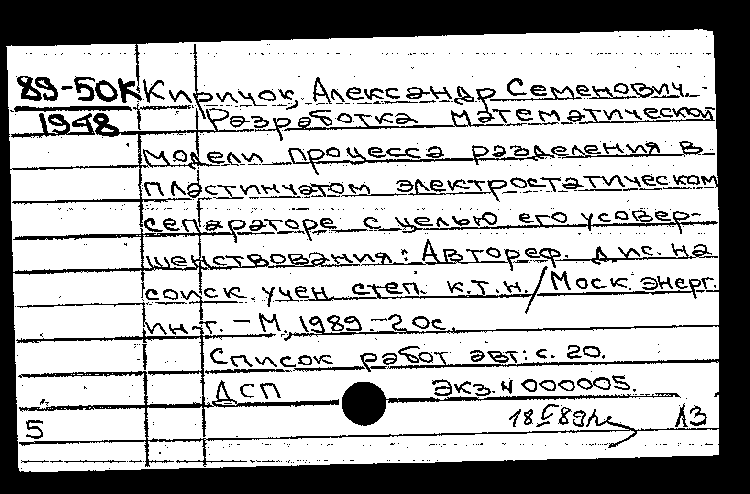 89-50К Киричок, Александр Семенович.
1948 Разработка математической
модели процесса разделения в
пластинчатом электростатическом
сепараторе с целью его усовер-
шенствования: Автореф. дис. на
соиск. учен. степ. к.т.н. / Моск. энерг.
ин-т. - М, 1989. - 20с.
Список работ авт: с. 20.
ДСП экз. N 000005.
5 Л3